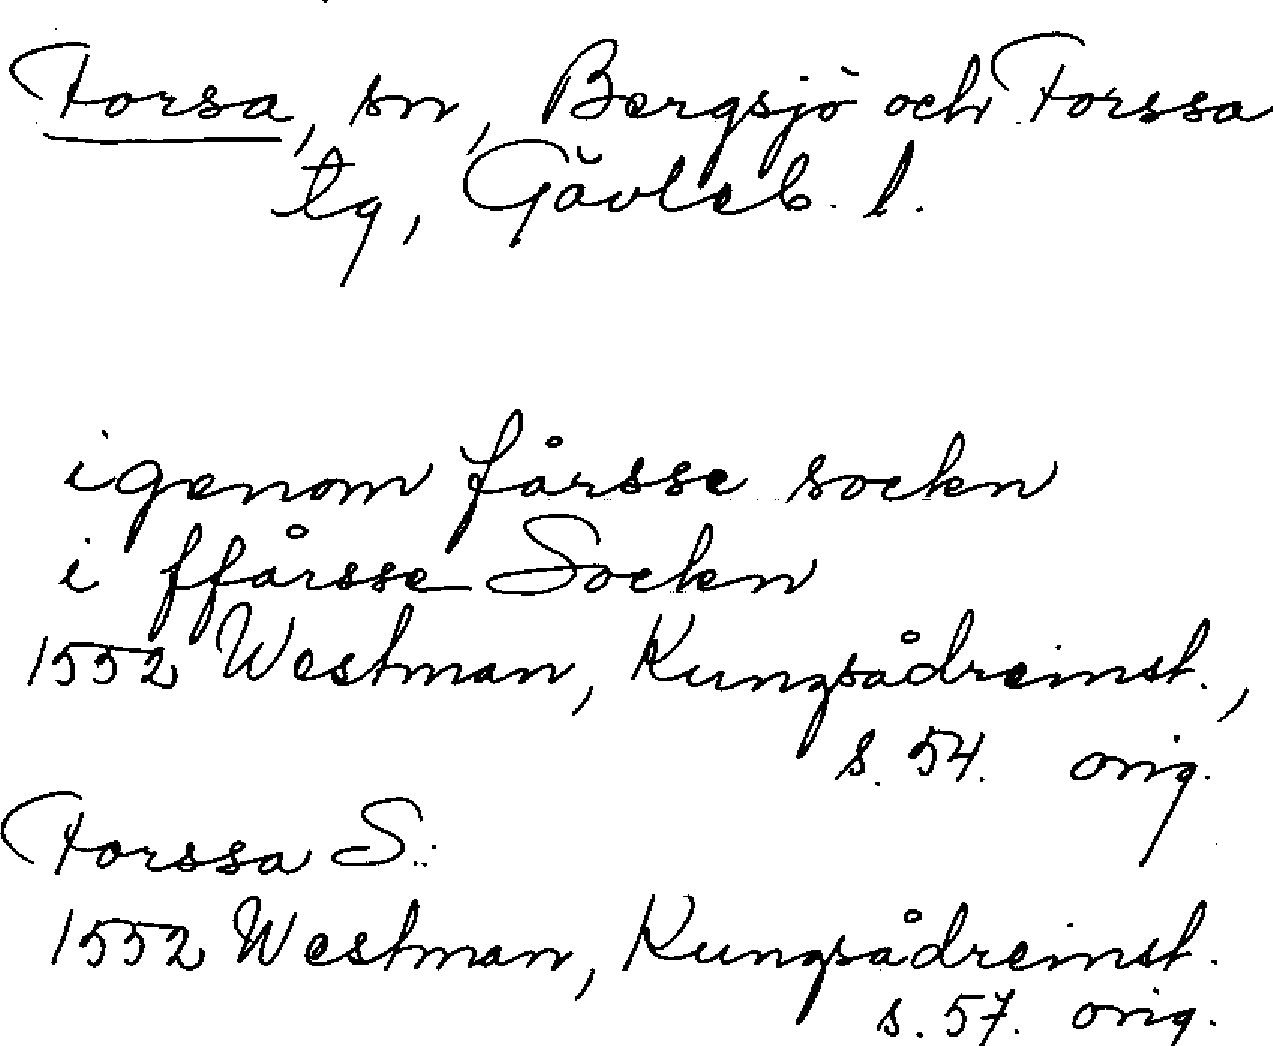 Forsa, sn, Bergsjö och Forssa
tg, Gävleb. l.
igenom fårsse sockn
i ffårsse Sockn
1552 Westman, Kungsådreinst.,
s. 54. orig.
Forssa S:
1552 Westman, Kungsådreinst.
s. 57. orig.